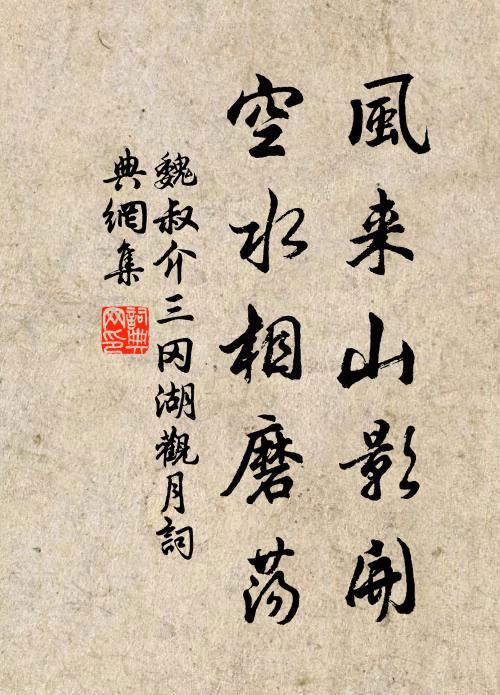 風来山影開
空水相磨蕩
魏叔介三冈湖觀月詞
典網集
詞典
网印